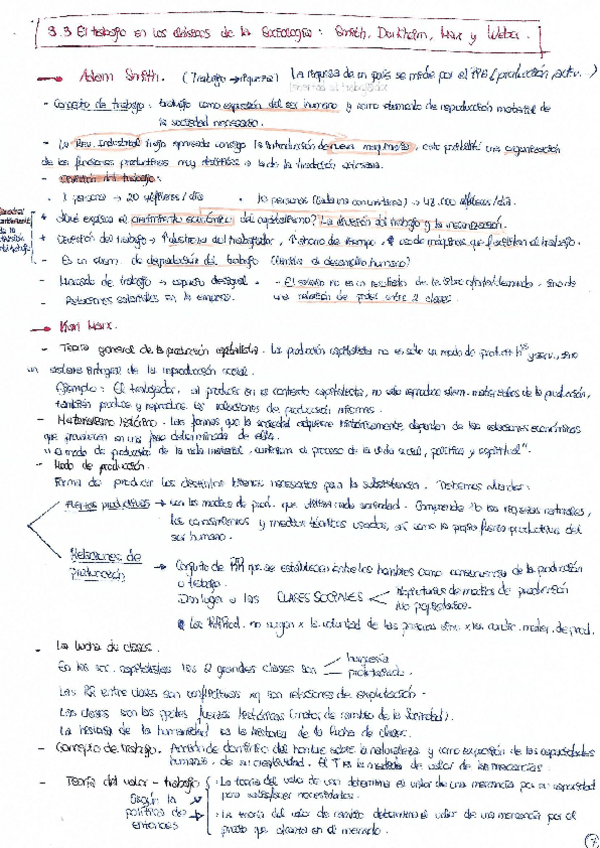 3.3 El trabajo en los clásicos de la Sociología: Smith, Durkheim, Marx y Weber.
→ Adam Smith. (Trabajo → Riqueza) La riqueza de un país se mide por el PIB (producción activ..)
- Concepto de trabajo. trabajo como expresión del ser humano y como elemento de reproducción material de
la sociedad necesario.
- La Rev. Industrial trajo consigo la introducción de nueva maquinaria, esto posibilitó una organización
de las funciones productivas muy
- División del trabajo:
· 1 persona → 20 alfileres / día · 10 personas (cada una con una tarea) → 48.000 alfileres / día.
+ ¿Qué explica el crecimiento económico del capitalismo? La división del trabajo y la mecanización.
+ División del trabajo → ↑destreza del trabajador, ↑ahorro de tiempo, ↑ uso de máquinas que facilitan el trabajo.
- Es un elem. de degradación del trabajo (limita el desarrollo humano)
- Mercado de trabajo → espacio desigual. - El salario no es un resultado de la libre oferta/demanda, sino de
- Relaciones salariales en la empresa. una relación de poder entre 2 clases.
→ Karl Marx.
- Teoría general de la producción capitalista. La producción capitalista no es sólo un modo de product y serv., sino
un sistema integral de la reproducción social.
Ejemplo: El trabajador, al producir en es contexto capitalista, no solo reproduce elem. materiales de la producción,
también produce y reproduce las relaciones de producción mismas.
- Materialismo histórico. Las formas que la sociedad adquiere históricamente dependen de las relaciones económicas
que prevalecen en una fase determinada de ella.
"El modo de producción de la vida material, condiciona el proceso de la vida social, política y espiritual".
- Modo de producción.
Forma de producir los distintos bienes necesarios para la subsistencia.
Fuerzas productivas → son los medios de prod. que utiliza cada sociedad. Comprende las riquezas naturales,
los conocimientos y medios técnicos usados, así como la propia fuerza productiva del
ser humano.
Relaciones de producción → Conjunto de RR que se establecen entre los hombres como consecuencia de la producción
o trabajo.
Dan lugar a las CLASES SOCIALES < Propietarios de medios de producción
No propietarios.
Las RR Prod. no surgen x la voluntad de las personas sino x las condic. mater. de prod.
- La lucha de clases.
En las soc. capitalistas las 2 grandes clases son < burguesía
proletariado.
Las RR entre clases son conflictivas xq son relaciones de explotación.
Las clases son las gdes fuerzas históricas (motor de cambio de la Sociedad).
La historia de la humanidad es la historia de la lucha de clases.
- Concepto de trabajo. Acción de dominio del hombre sobre la naturaleza y como expresión de las capacidades
humanas, de su creatividad. El T es la medida de valor de las mercancías.
- Teoría del valor - trabajo · La teoría del valor de uso determina el valor de una mercancía por su capacidad
Según la para satisfacer necesidades.
política de · La teoría del valor de cambio determina el valor de una mercancía por el
entonces precio que alcanza en el mercado.
7